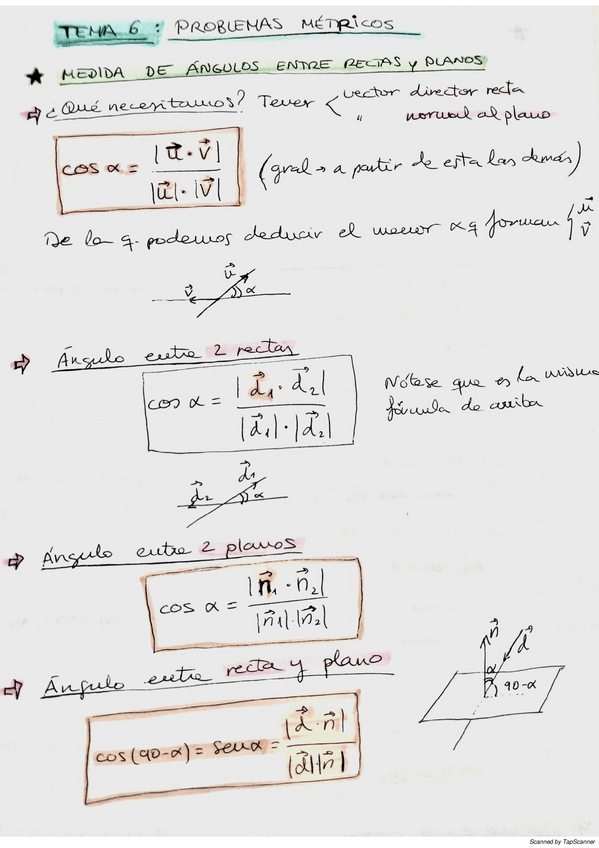 TEMA 6 : PROBLEMAS MÉTRICOS
★ MEDIDA DE ÁNGULOS ENTRE RECTAS y PLANOS
⇨ ¿Qué necesitamos? Tener < vector director recta
" normal al plano
cos α = |u⃗ · v⃗| / |u⃗| · |v⃗| (gral → a partir de esta las demás)
De la q. podemos deducir el menor α q forman { u⃗
v⃗
u⃗
v⃗ α
⇨ Ángulo entre 2 rectas
cos α = |d⃗₁ · d⃗₂| / |d⃗₁| · |d⃗₂| Nótese que es la misma
fórmula de arriba
d⃗₁
d⃗₂ α
⇨ Ángulo entre 2 planos
cos α = |n⃗₁ · n⃗₂| / |n⃗₁| · |n⃗₂|
⇨ Ángulo entre recta y plano
n⃗ d⃗
α
90-α
cos(90-α) = sen α = |d⃗ · n⃗| / |d⃗||n⃗|
Scanned by TapScanner